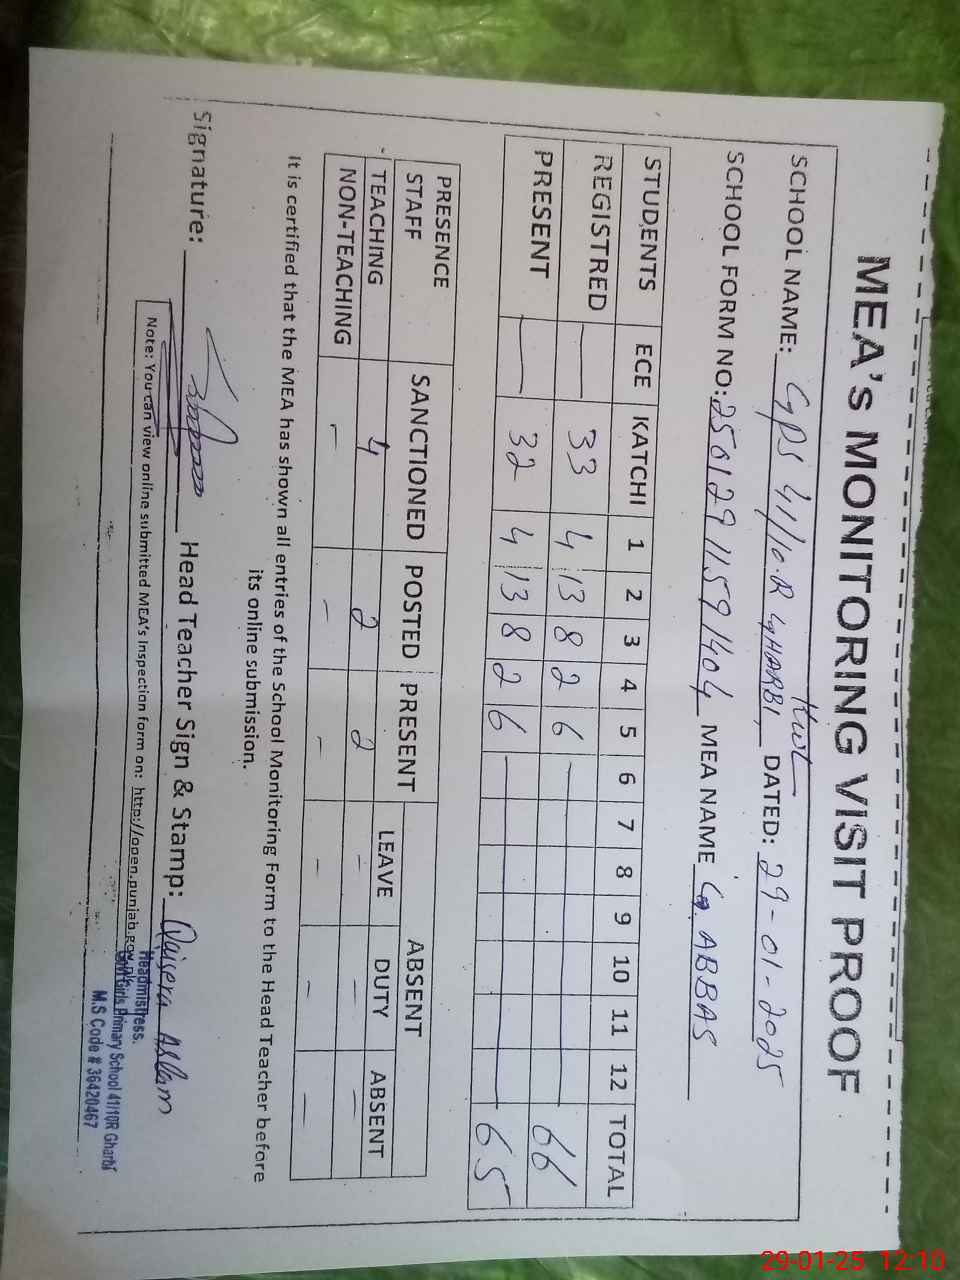 MEA's MONITORING VISIT PROOF
SCHOOL NAME: GPS 41/10.R GHARBI, DATED: 29-01-2025
SCHOOL FORM NO: 250129 1159 1404 MEA NAME G. ABBAS
STUDENTS ECE KATCHI 1 2 3 4 5 6 7 8 9 10 11 12 TOTAL
REGISTRED — 33 4 13 8 2 6 — 66
PRESENT — 32 4 13 8 2 6 — 65
PRESENCE STAFF SANCTIONED POSTED PRESENT ABSENT
LEAVE DUTY ABSENT
TEACHING 4 2 2 — — —
NON-TEACHING — — — — — —
It is certified that the MEA has shown all entries of the School Monitoring Form to the Head Teacher before
its online submission.
Signature: Head Teacher Sign & Stamp: Qaisera Aslam
Headmistress.
Govt Girls Primary School 41/10R Gharbi
M.S Code # 36420467
Note: You can view online submitted MEA's Inspection form on: http://open.punjab.gov.pk
29-01-25 12:10